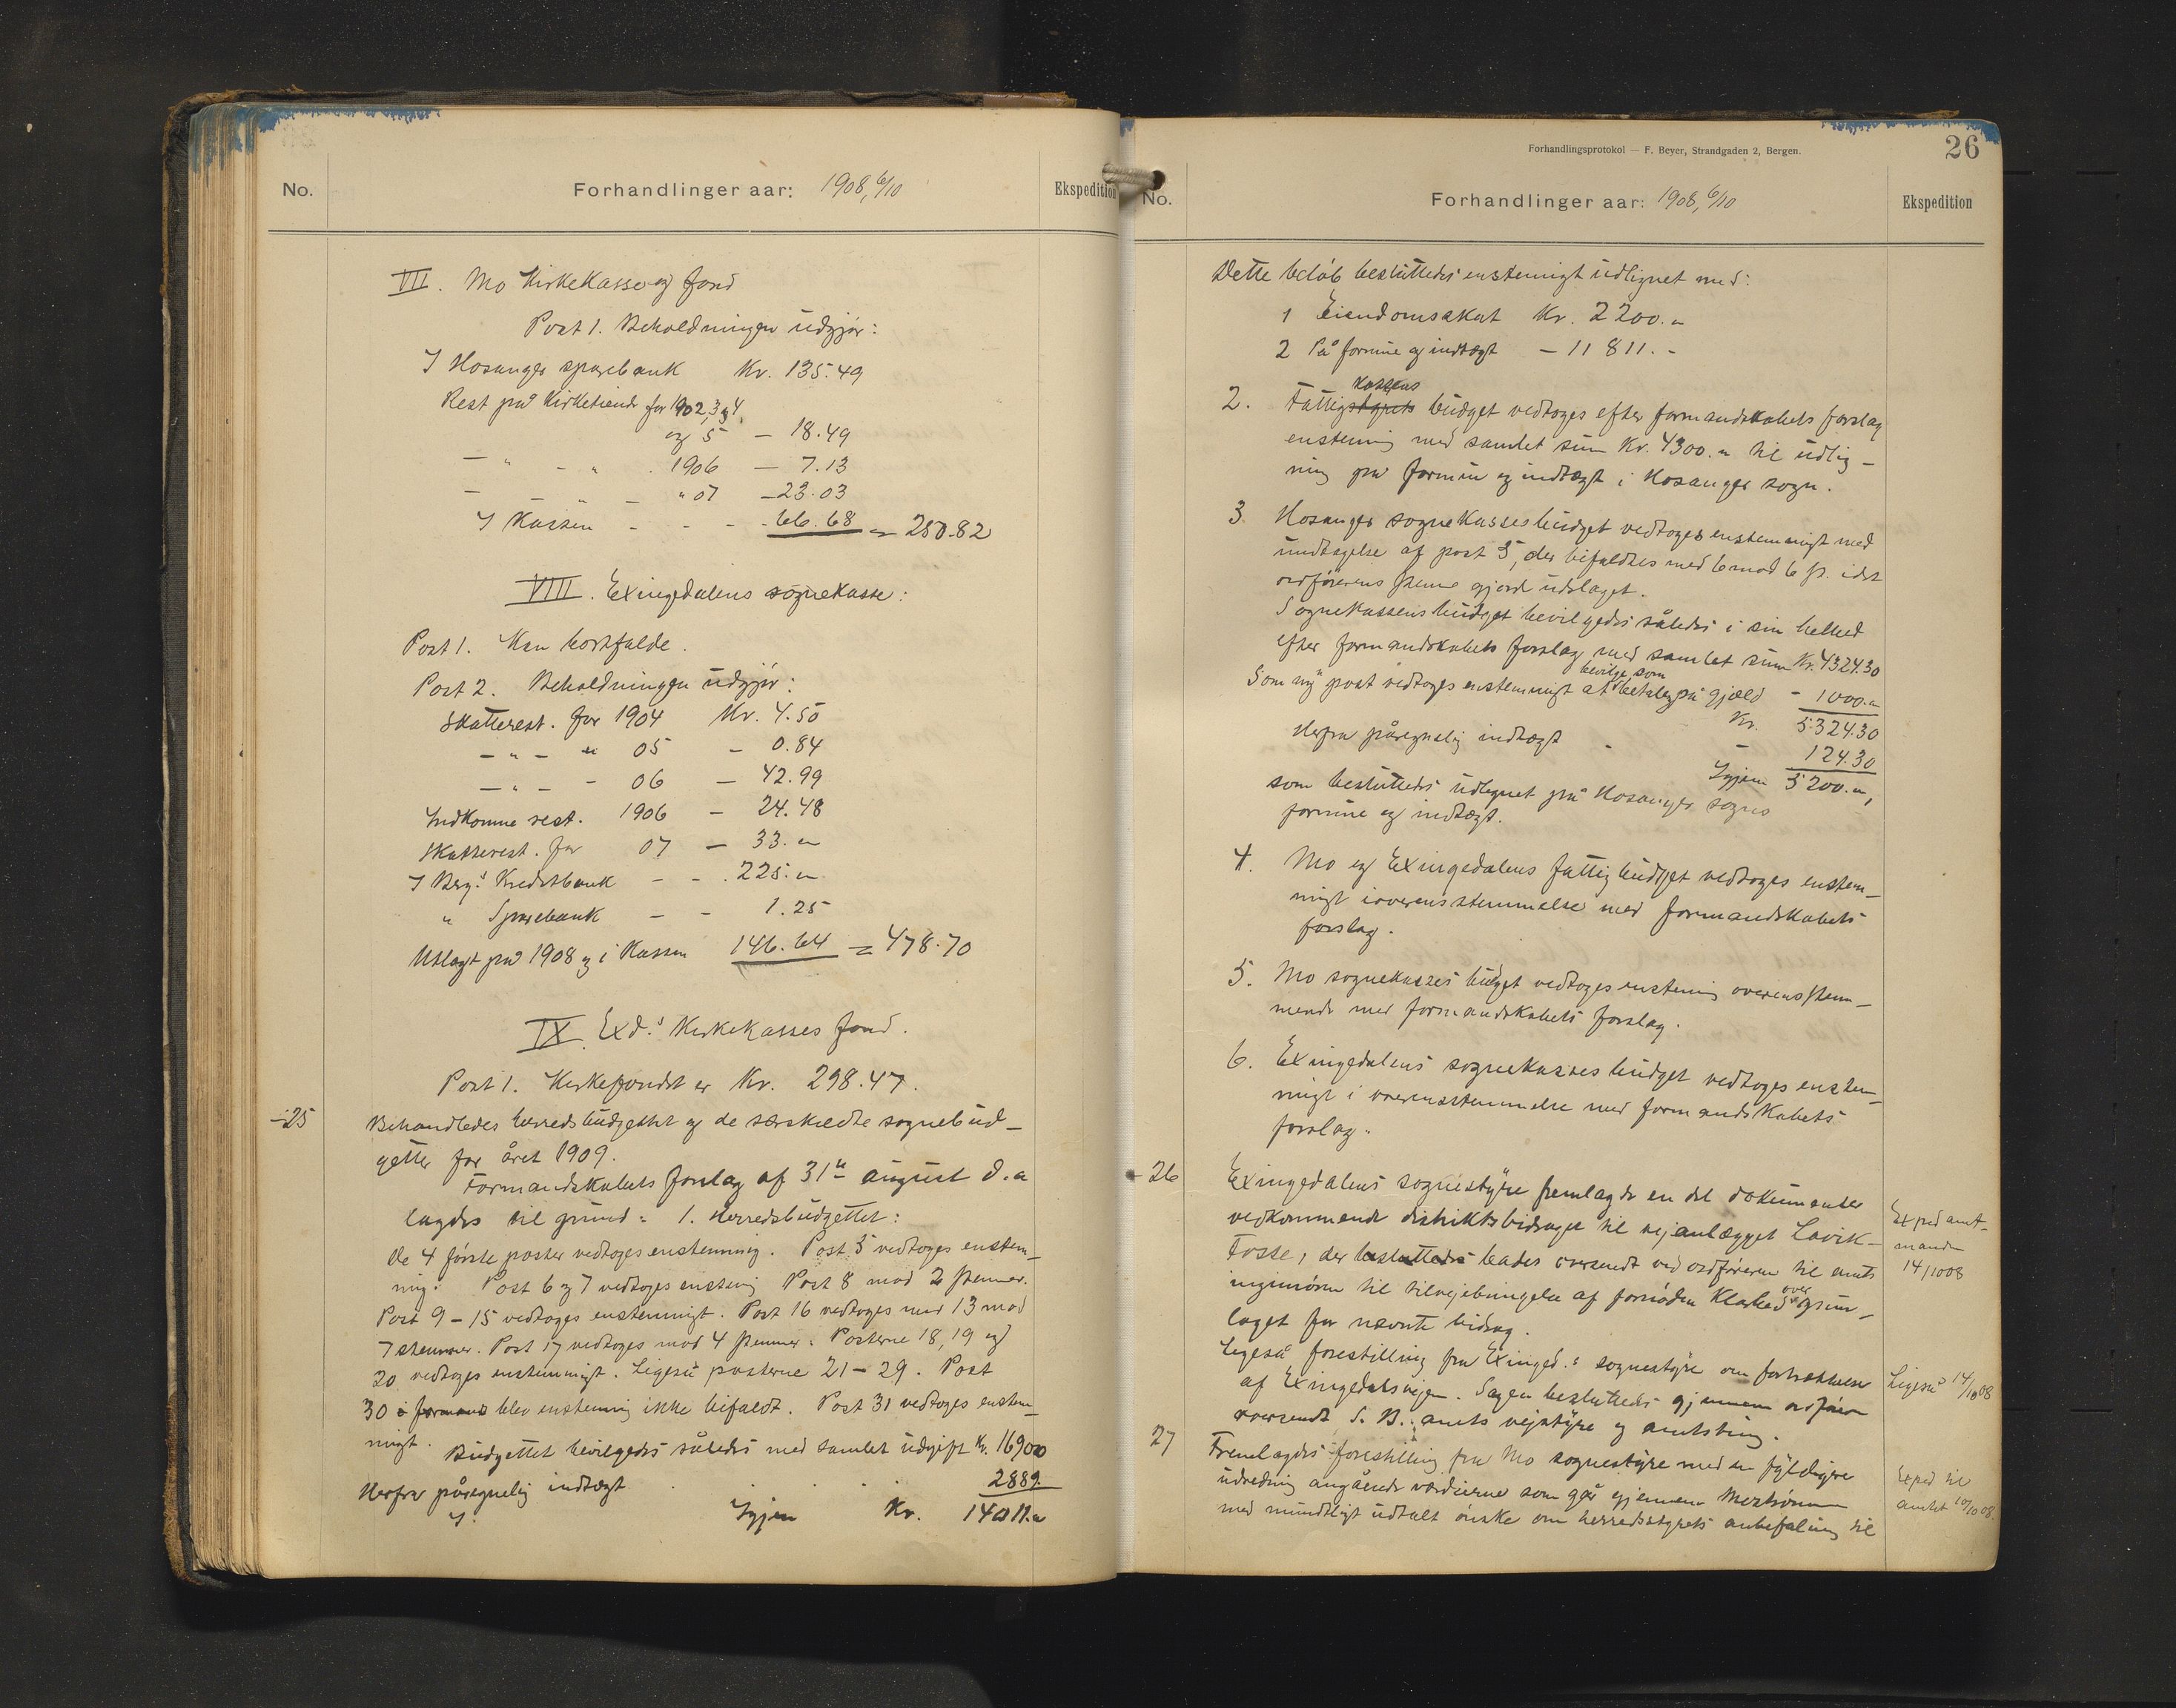 No.
Forhandlinger aar: 1908, 6/10
Ekspedition
VII. Mo Kirkekasse og fond
Post 1. Beholdningen üdgjør:
I Hosanger sparebank Kr. 135.49
Rest på Kirketiende for 1902, 3 og 4
og 5 — 18.49
— " - " . 1906 — 7.13
— — " — " 07 — 23.03
I Kassen - - - 66.68 = 250.82
VIII. Exingedalens sognekasse:
Post 1. Kan bortfalde.
Post 2. Beholdningen üdgjør:
Skatterest. for 1904 Kr. 4.50
— " — " 05 - 0.84
— " — - 06 — 42.99
Indkomne rest. 1906 — 24.48
Skatterest. for 07 — 33. "
I Berg.s Kreditbank — - . 225. "
" Sparebank — - 1.25
Utlagt på 1908 og i Kassen 146.64 = 478.70
IX. Exd.s Kirkekasses fond.
Post 1. Kirkefondet er Kr. 298.47.
—25
Behandledes herredsbüdgettet og de særskilte sognebüd-
getter for året 1909.
Formandskabets forslag af 31te august d.a
lagdes til gründ: 1. Herredsbüdgettet:
De 4 første poster vedtoges enstemmig. Post 5 vedtoges enstem-
mig. Post 6 og 7 vedtoges enstemig Post 8 mod 2 stemmer.
Post 9 – 15 vedtoges enstemmigt. Post 16 vedtoges med 13 mod
7 stemmer. Post 17 vedtoges mod 4 stemmer. Posterne 18, 19 og
20 vedtoges enstemmigt. Ligeså posterne 21 – 29. Post
30 i formands blev enstemig ikke bifaldt. Post 31 vedtoges enstem-
migt. Büdgettet bevilgedes således med samlet üdgift Kr. 16900
Herfra påregnelig indtægt . . 2889.
Igjen Kr. 14011. "
Forhandlingsprotokol — F. Beyer, Strandgaden 2, Bergen.
26
No.
Forhandlinger aar: 1908, 6/10
Ekspedition
Dette beløb beslüttedes enstemigt üdlignet med:
1 Eiendomsskat Kr. 2200. "
2 På formue og indtægt — 11811. -
kassens
2. Fattigstyrets büdget vedtoges efter formandskabets forslag
enstemig med samlet süm Kr. 4300. " til üdlig-
ning på formue og indtægt i Hosanger sogn.
3 Hosanger sognekasses büdget vedtoges enstemmigt med
ündtagelse af post 5, der bifaldtes med 6 mod 6 st. idet
ordførerens stemme gjorde üdslaget.
Sognekassens büdget bevilgedes således i sin helhed
efter formandskabets forslag med samlet süm Kr. 4324.30
bevilge, som
Som ny post vedtoges enstemmigt at betaling på gjæld - 1000. "
Kr. 5324.30
Herfra påregnelig indtægt - — 124.30
Igjen 5200. ",
som beslüttedes üdlignet på Hosanger sogns
formüe og indtægt.
4. Mo og Exingedalens fattigbüdget vedtoges enstem-
migt i overensstemmelse med formandskabets
forslag.
5. Mo sognekasses büdget vedtoges enstemig overensstem-
mende med formandskabets forslag.
6. Exingedalens sognekasses büdget vedtoges enstem-
migt i overensstemmelse med formandskabets
forslag.
— 26
Exingedalens sognestyre fremlagde en del dokümenter
vedkommende distriktsbidraget til vejanlægget Lavik –
Fosse, der beslüttedes bades oversendt ved ordføreren til amts
ingeniøren til tilvejebringelse af fornøden Klarhed over grün-
laget for nævnte bidrag.
Exped amt-
manden
14/10 08
Ligeså forestilling fra Exinged.s sognestyre om fortsættelse
af Exingedalsvejen. Sagen beslüttedes gjennem ordfører
oversendt S. B. amts vejstyre og amtsting.
Ligeså 14/10 08
27
Fremlagdes forestilling fra Mo sognestyre med en fyldigere
üdredning angående værdierne som går gjennem
med mündtligt üdtalt ønske om herredsstyrets anbefaling til
Exped til
amtet 14/10 08.